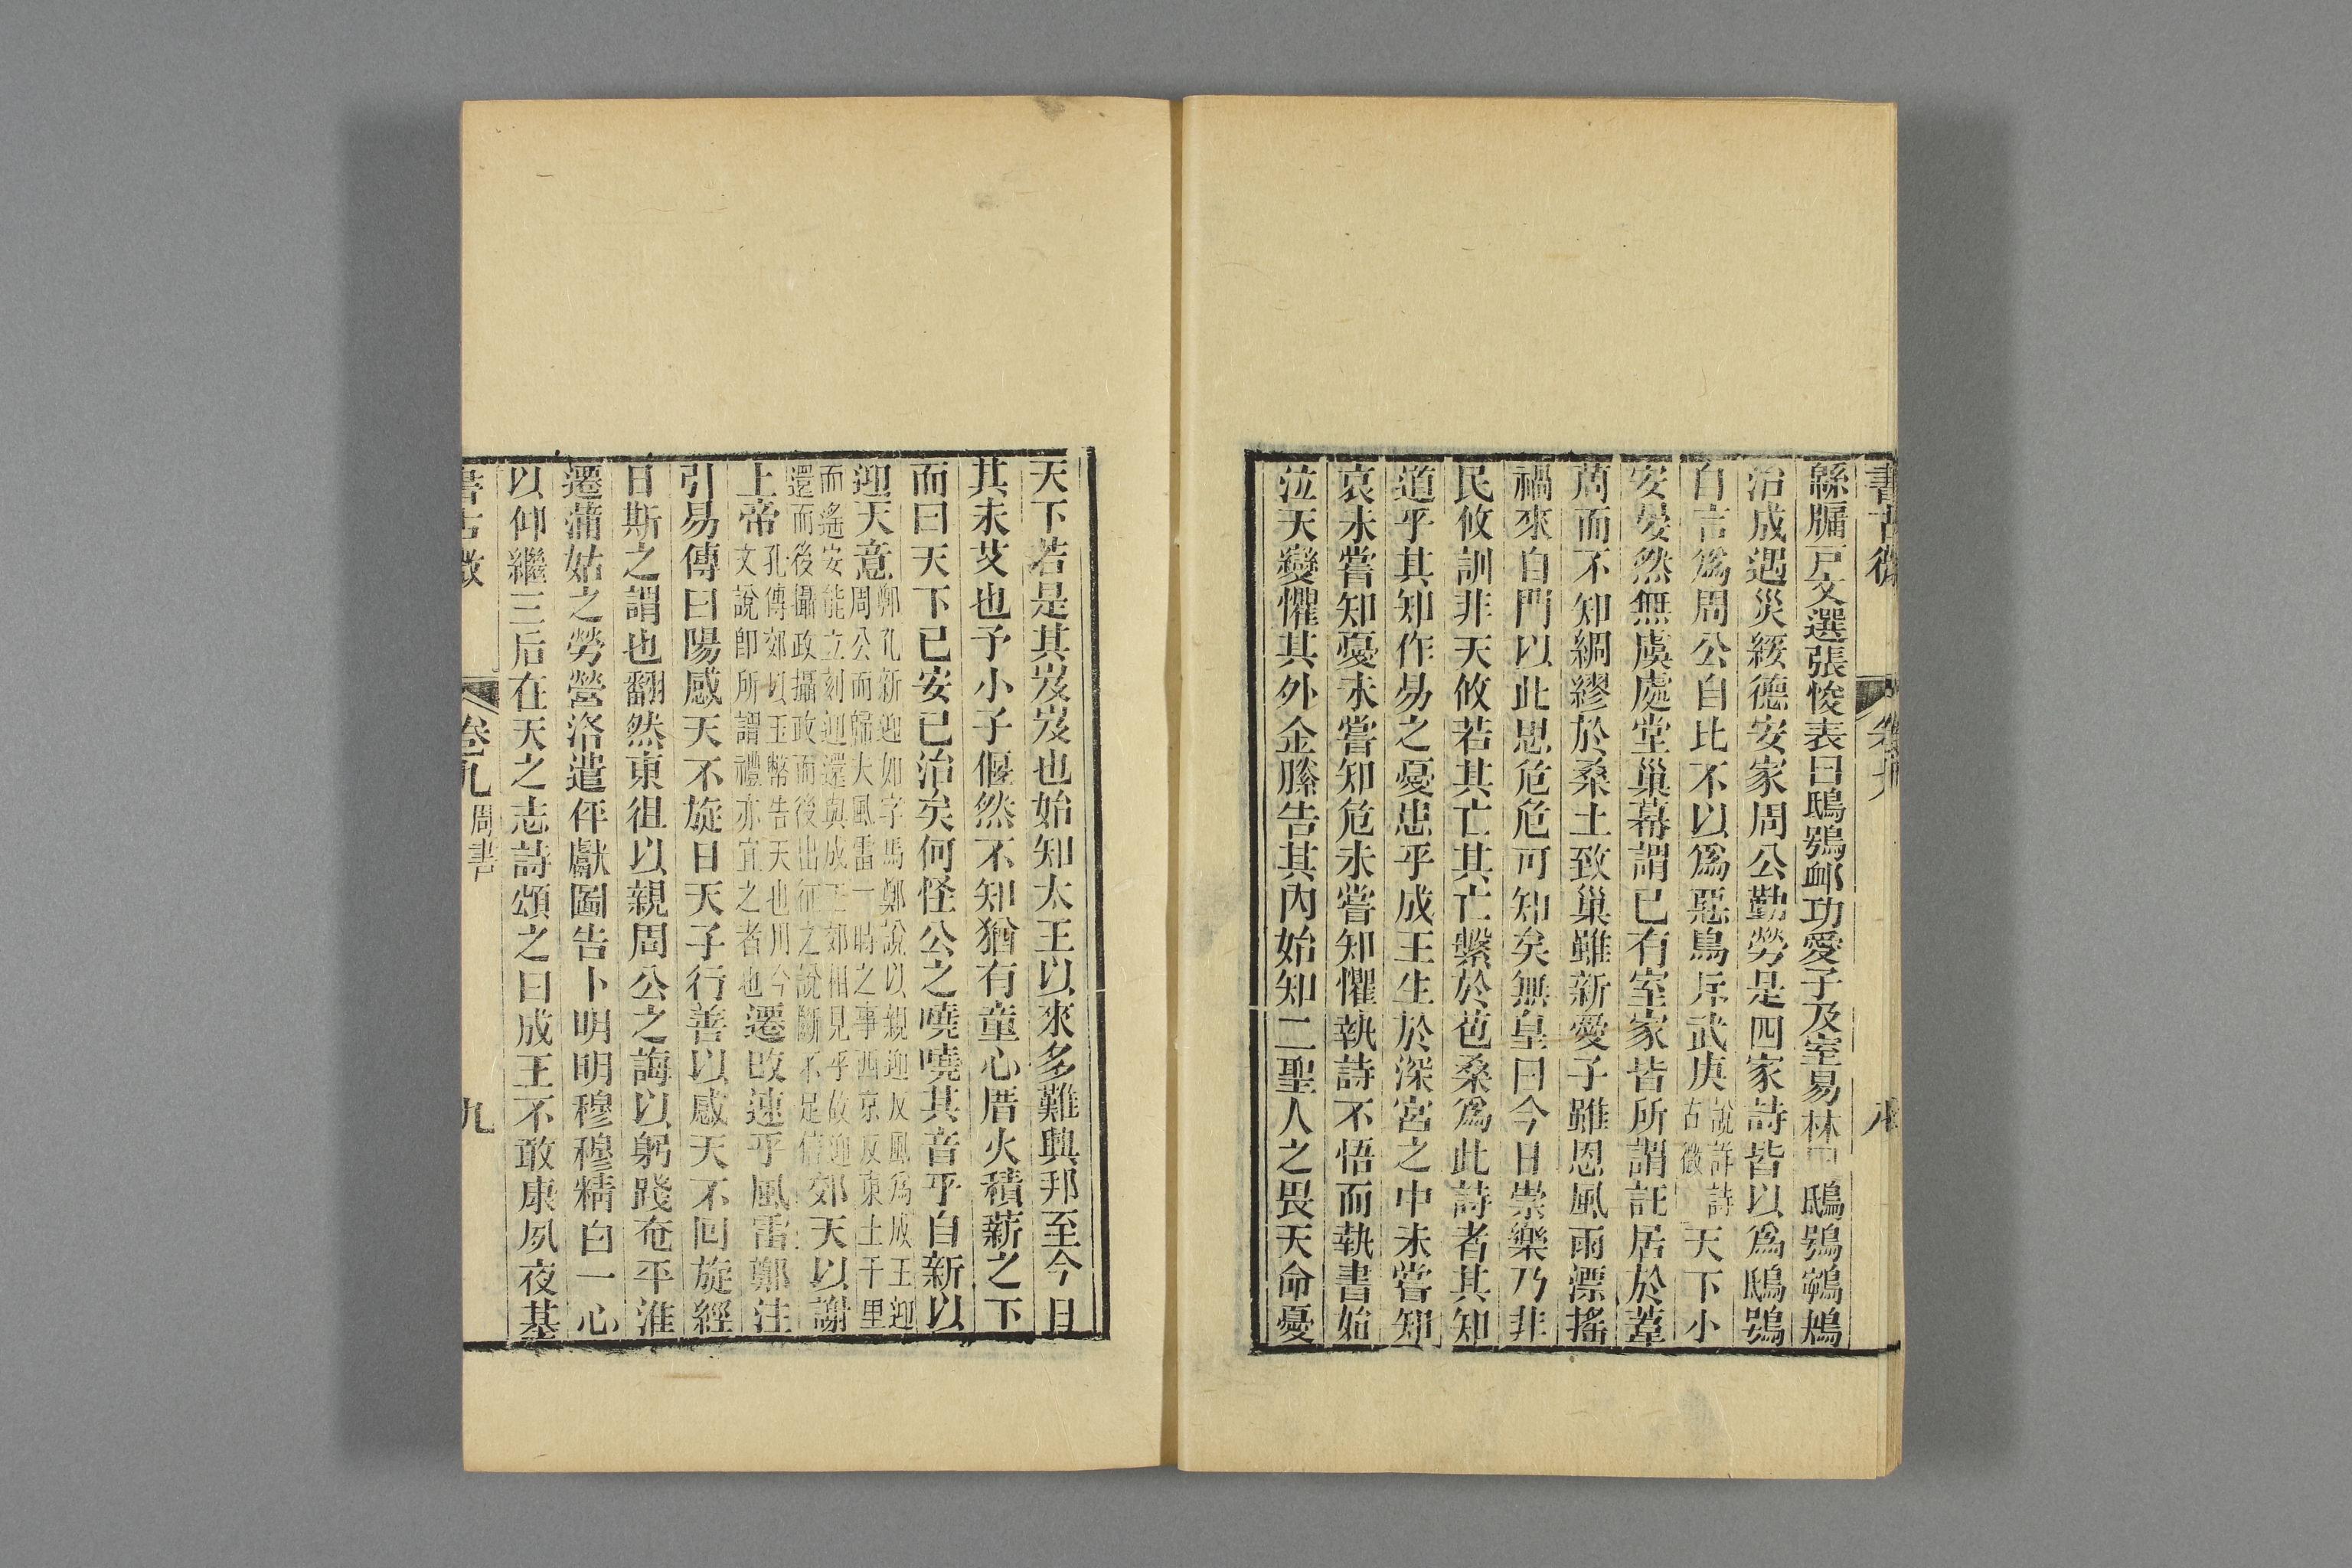 書古微
卷九
八
緜牖戸文選張悛表曰鴟鴞䘏功愛子及室易林曰鴟鴞鵪鴂
治成遇災綏德安家周公勤勞是四家詩皆以爲鴟鴞
自言爲周公自比不以爲惡鳥斥武庚說詳詩古微天下小
安晏然無虞處堂巢幕謂已有室家皆所謂託居於葦
萳而不知綢繆於桑土致巢雖新愛子雖恩風雨漂搖
禍來自門以此思危危可知矣無皇曰今日崇樂乃非
民攸訓非天攸若其亡其亡繫於苞桑爲此詩者其知
道乎其知作易之憂患乎成王生於深宮之中未嘗知
哀未嘗知憂未嘗知危未嘗知懼執詩不悟而執書始
泣天變懼其外金縢告其內始知二聖人之畏天命憂
天下若是其岌岌也始知太王以來多難興邦至今日
其未艾也予小子偃然不知猶有童心厝火積薪之下
而曰天下已安已治矣何怪公之嘵嘵其音乎自新以
迎天意鄭孔新迎如字馬鄭說以親迎反風爲成王迎周公而歸大風雷一時之事西京反東土千里
而遙安能立刻迎還與成王郊相見乎故迎還而後攝政攝政而後出征之說斷不足信郊天以謝
上帝孔傳郊以玉幣告天也用今文說卽所謂禮亦宜之者也遷改速乎風雷鄭注
引易傳曰陽感天不旋日天子行善以感天不回旋經
日斯之謂也翻然東徂以親周公之誨以躬踐奄平淮
遷蒲姑之勞營洛遣伻獻圖告卜明明穆穆精白一心
以仰繼三后在天之志詩頌之曰成王不敢康夙夜基
書古微
卷九
周書
九